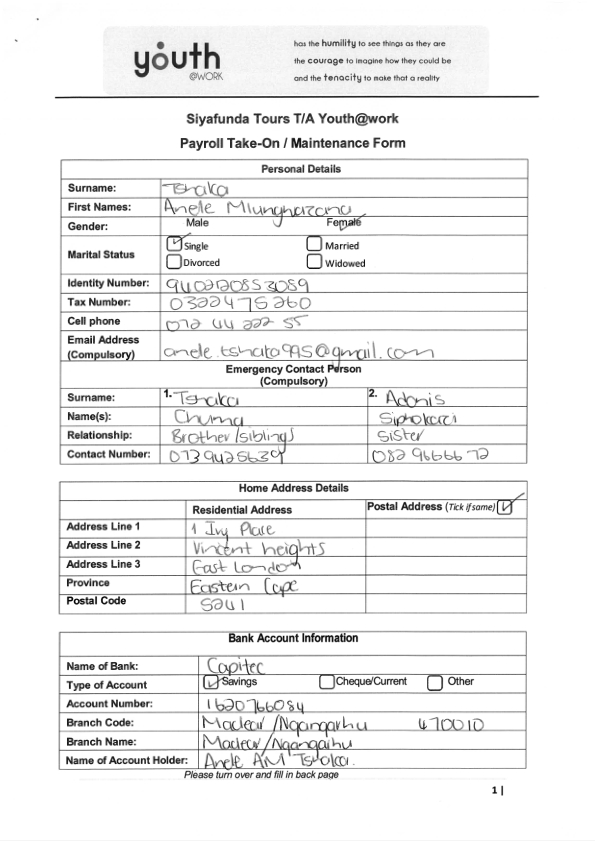 youth
@WORK
has the humility to see things as they are
the courage to imagine how they could be
and the tenacity to make that a reality
Siyafunda Tours T/A Youth@work
Payroll Take-On / Maintenance Form
Personal Details
Surname: Tshaka
First Names: Anele Mlunghazana
Gender: Male Female
Marital Status Single Married
Divorced Widowed
Identity Number:
Tax Number: 0322475260
Cell phone 072 44 222 55
Email Address
(Compulsory) anele.tshata995@gmail.com
Emergency Contact Person
(Compulsory)
Surname: 1. Tshaka 2. Adonis
Name(s): Chuma
Relationship: Brother/siblings Sister
Contact Number: 0739425639 082 9666672
Home Address Details
Residential Address Postal Address (Tick if same)
Address Line 1 1 Ivy Place
Address Line 2 Vincent heights
Address Line 3 East London
Province Eastern Cape
Postal Code 5241
Bank Account Information
Name of Bank: Capitec
Type of Account Savings Cheque/Current Other
Account Number: 1620766084
Branch Code: Maclear/ 470010
Branch Name: Maclear/
Name of Account Holder: Anele AM Tshaka.
Please turn over and fill in back page
1 |